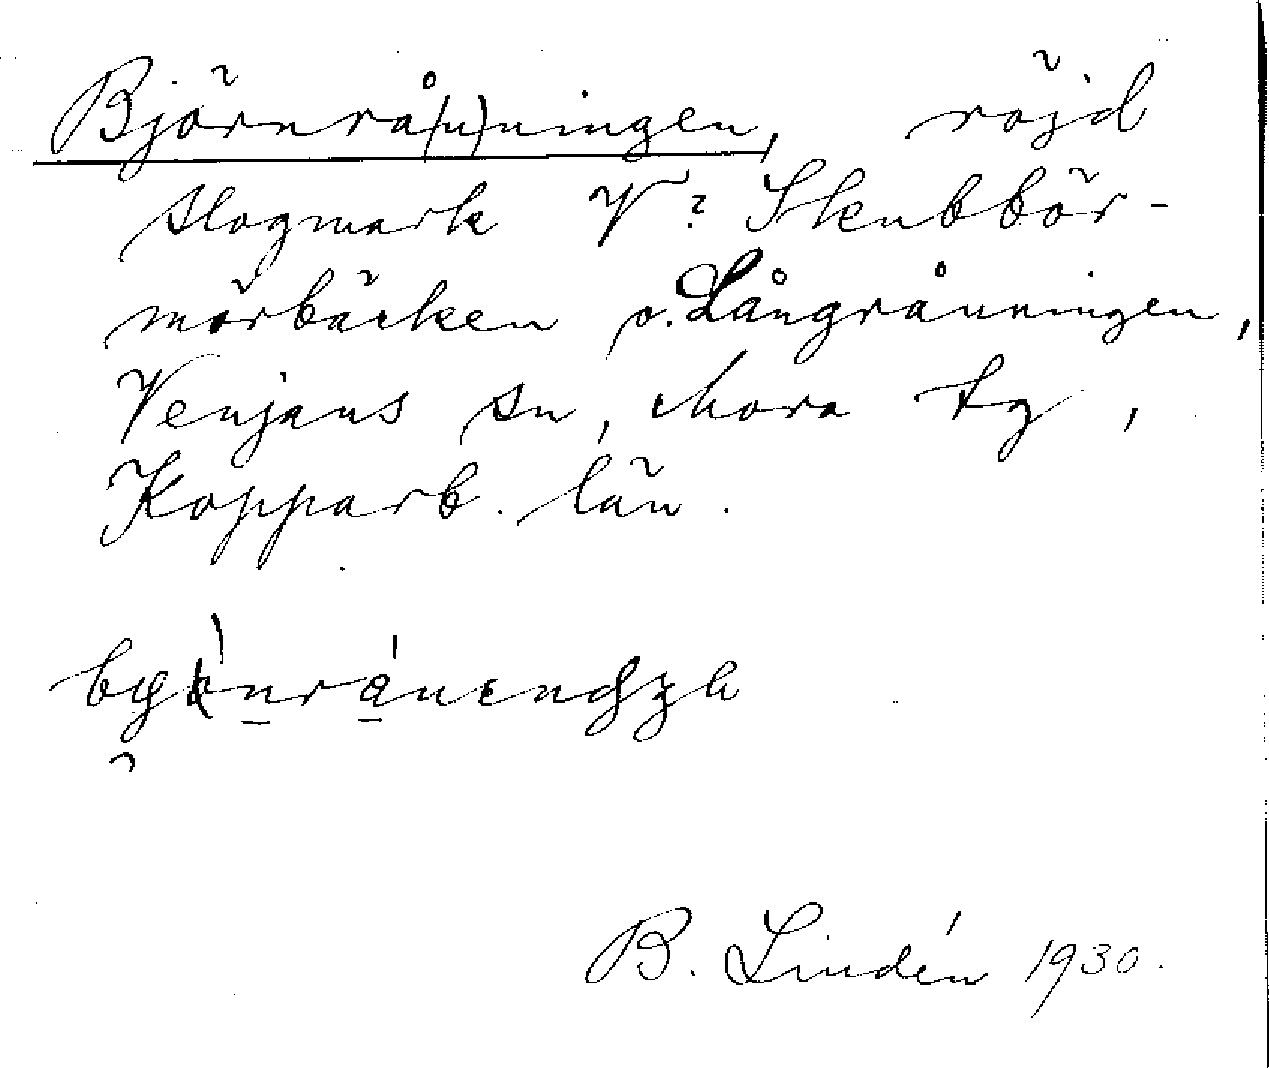 Björnrå(n)ningen, röjd
slogmark V? Skubbör-
mörbäcken o. Långrånningen,
Venjans sn, Mora tg,
Kopparb. län.
B. Lindén 1930.